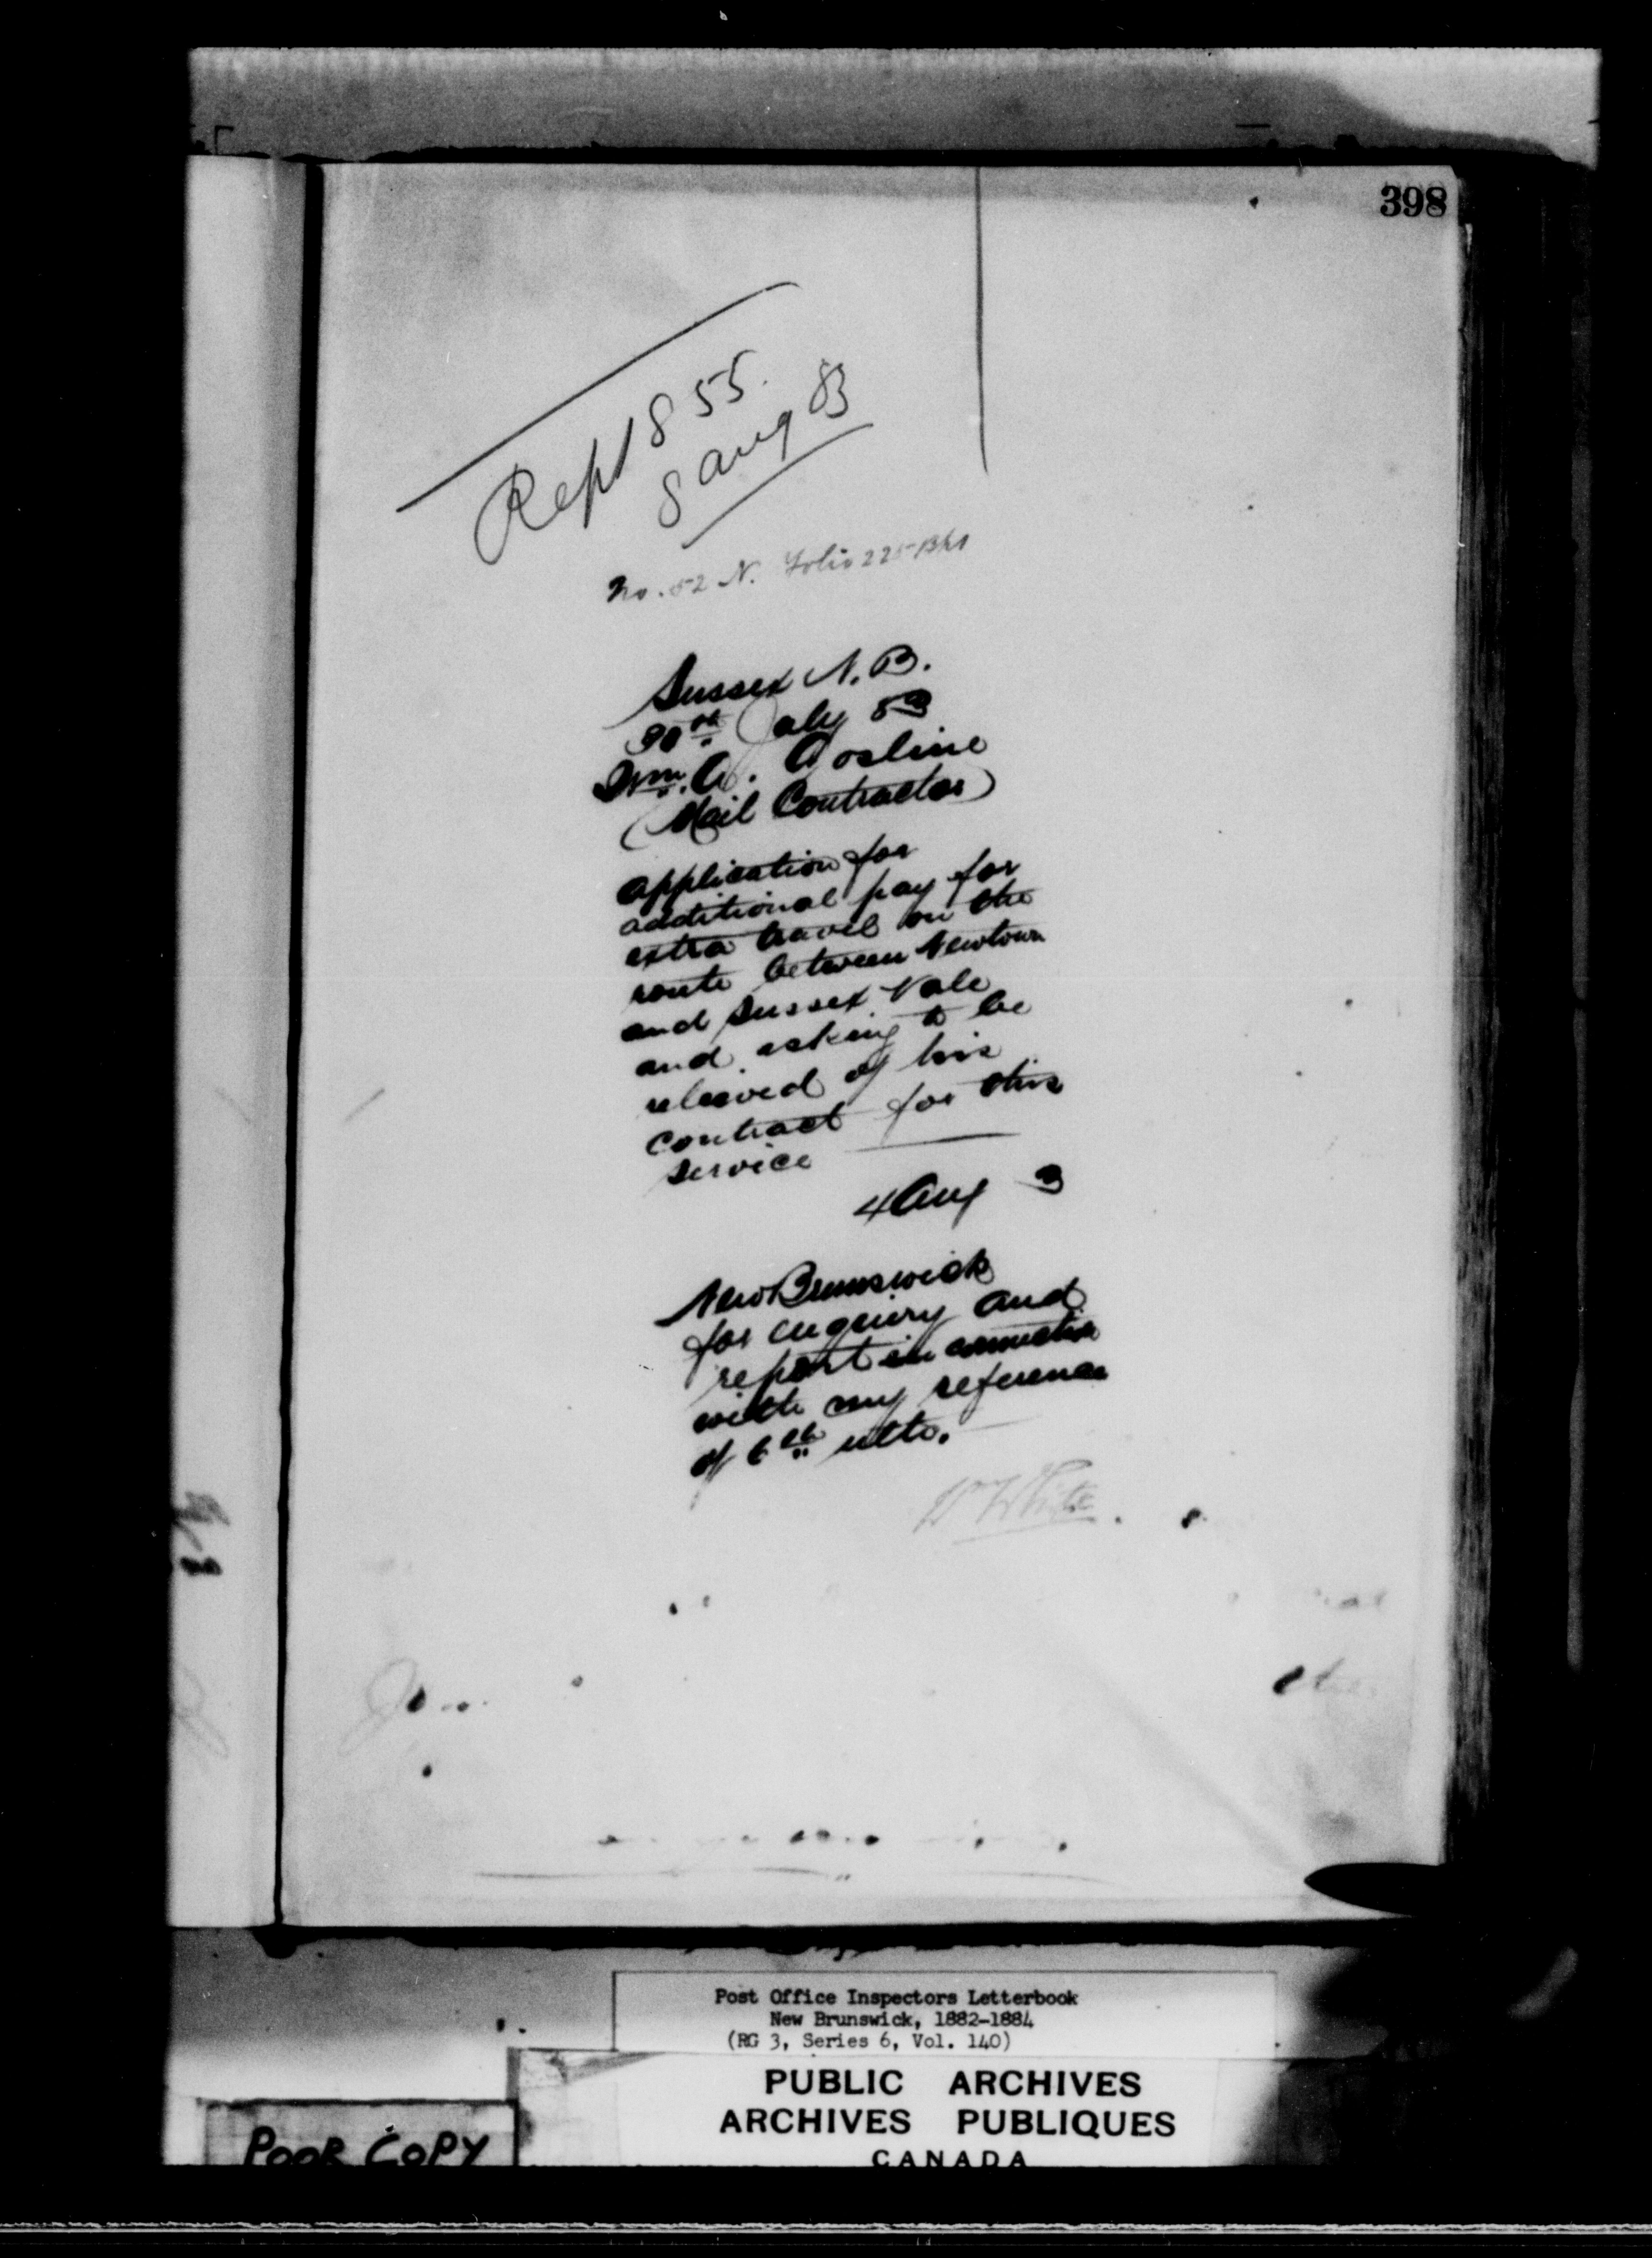 398
Rept 855.
8 Aug 83
No. 52 N. Folio 225
Sussex N.B.
30th July 83
Wm. A. Gosline
(Mail Contractor)
application for
additional pay for
extra travel on the
route between Newtown
and Sussex Vale
and asking to be
releived of his
contract for this
service
4 Aug 3
New Brunswick
for enquiry and
report in connection
with my reference
of 6th ulto.
W White.
Post Office Inspectors Letterbook
New Brunswick, 1882-1884
(RG 3, Series 6, Vol. 140)
PUBLIC ARCHIVES
ARCHIVES PUBLIQUES
CANADA
POOR COPY